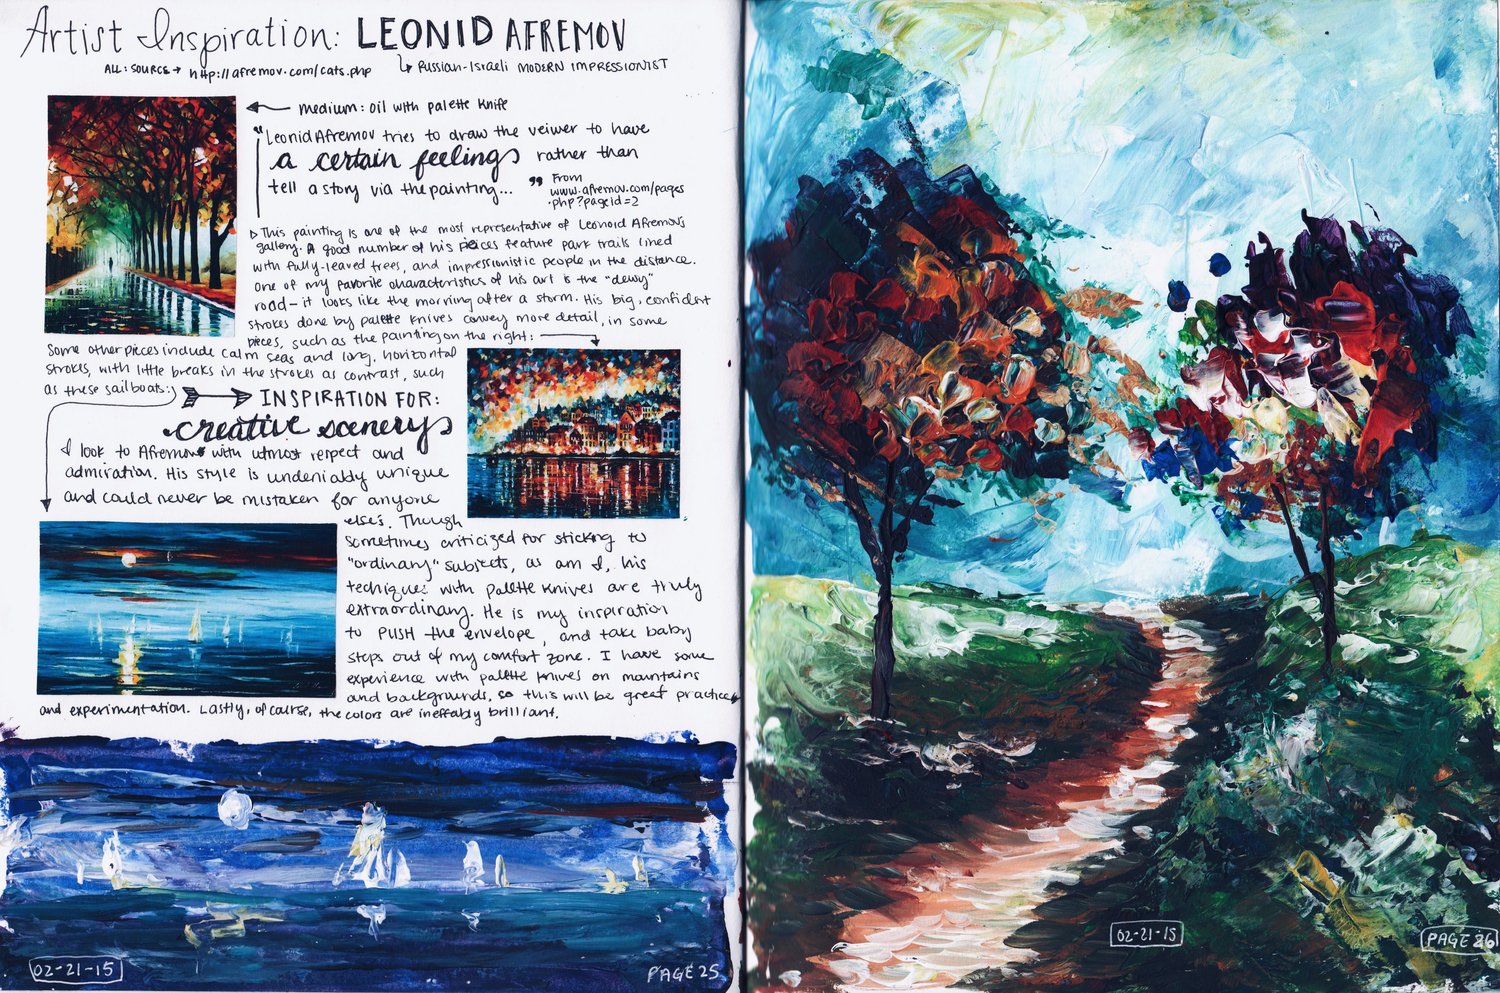 Artist Inspiration: LEONID AFREMOV
ALL: SOURCE → http://afremov.com/cats.php
↳ Russian-Israeli MODERN IMPRESSIONIST
← medium: oil with palette knife
"Leonid Afremov tries to draw the veiwer to have
a certain feelings rather than
tell a story via the painting... "
From
www.afremov.com/pages
.php?pageid=2
▷ This painting is one of the most representative of Leonoid Afremov's
gallery. A good number of his pieces feature park trails lined
with fully-leaved trees, and impressionistic people in the distance.
One of my favorite characteristics of his art is the "dewy"
road - it looks like the morning after a storm. His big, confident
strokes done by palette knives convey more detail, in some
pieces, such as the painting on the right:
Some other pieces include calm seas and long, horizontal
strokes, with little breaks in the strokes as contrast, such
as these sailboats:)
INSPIRATION FOR:
creative scenery
I look to Afremov with utmost respect and
admiration. His style is undeniably unique
and could never be mistaken for anyone
else's. Though
sometimes criticized for sticking to
"ordinary" subjects, as am I, his
techique with palette knives are truly
extraordinary. He is my inspiration
to PUSH the envelope, and take baby
steps out of my comfort zone. I have some
experience with palette knives on mountains
and backgrounds, so this will be great practice
and experimentation. Lastly, of course, the colors are ineffably brilliant.
02-21-15
PAGE 25
02-21-15
PAGE 26